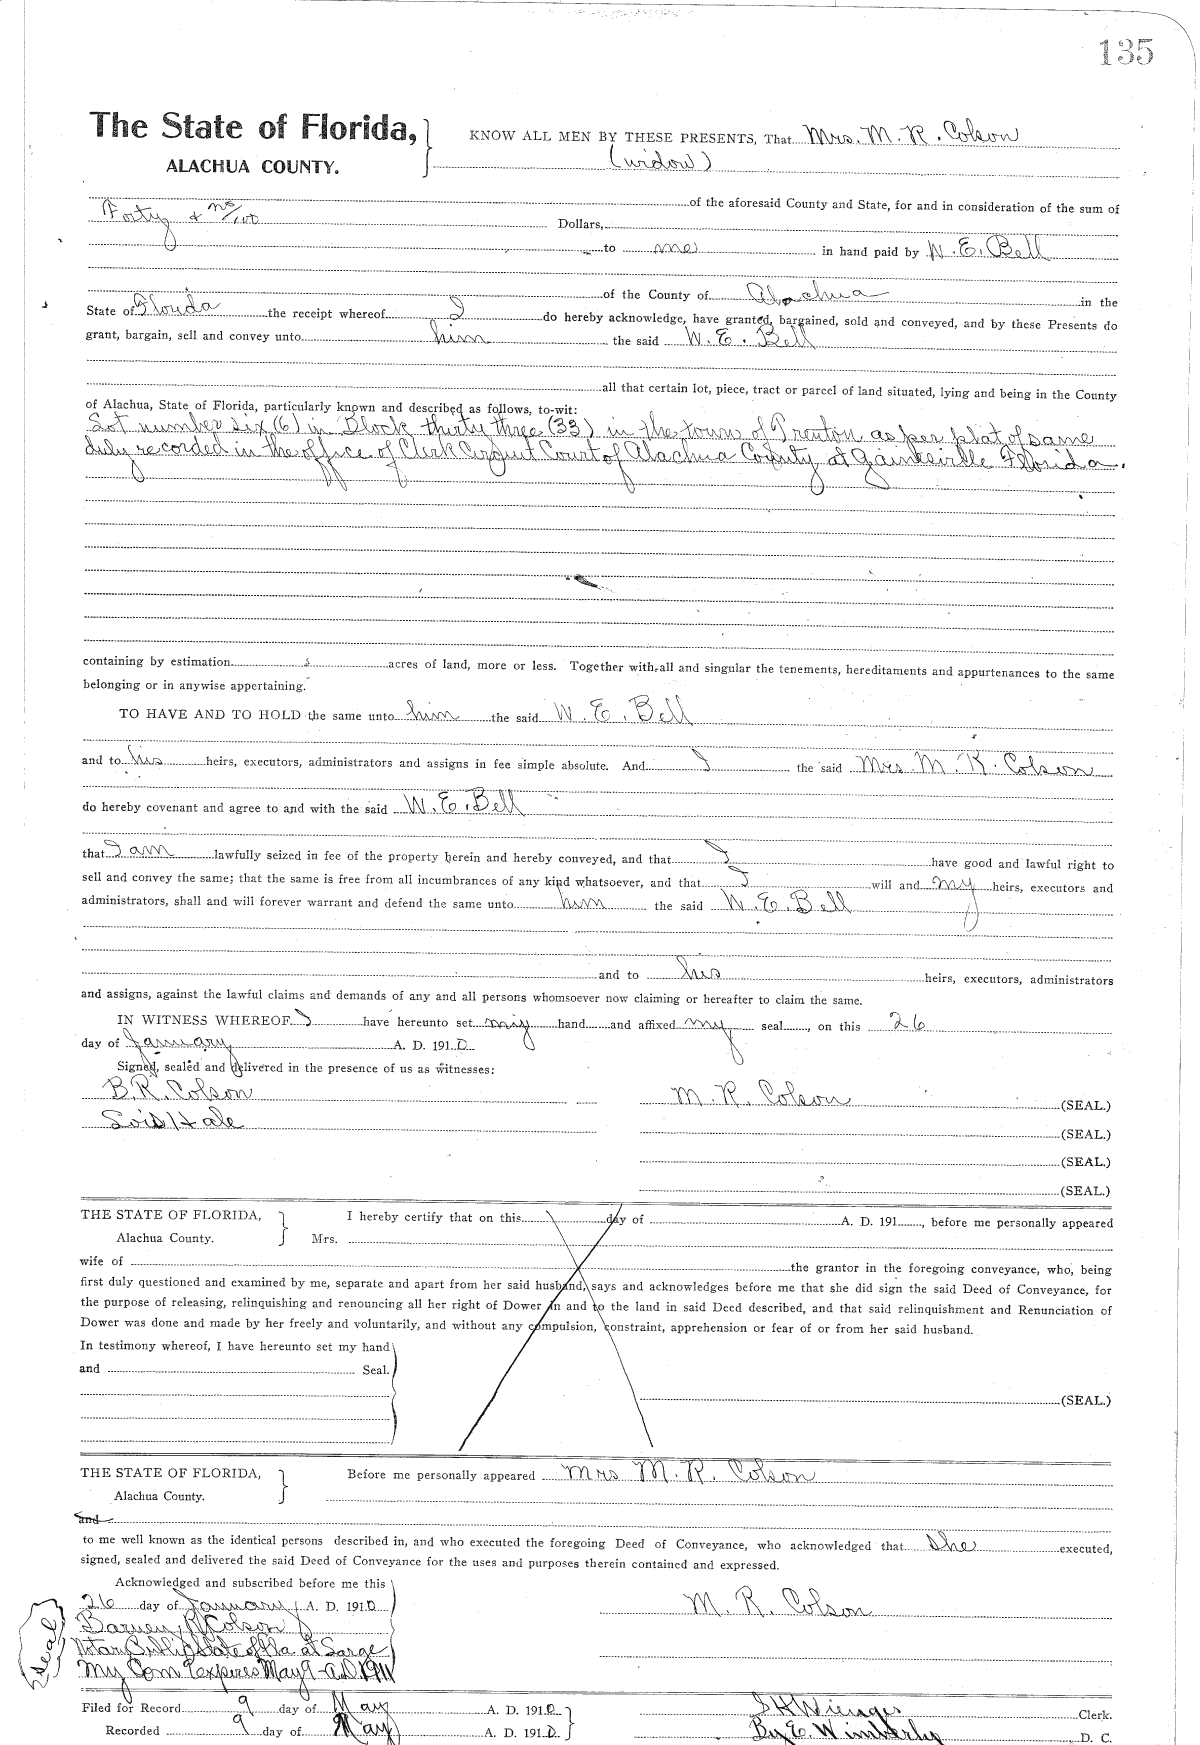 135
The State of Florida, KNOW ALL MEN BY THESE PRESENTS, That Mrs. M. R. Colson
ALACHUA COUNTY. (widow)
of the aforesaid County and State, for and in consideration of the sum of
Forty & no/100 Dollars,
to me in hand paid by W. E. Bell
of the County of Alachua in the
State of Florida the receipt whereof I do hereby acknowledge, have granted, bargained, sold and conveyed, and by these Presents do
grant, bargain, sell and convey unto him the said W. E. Bell
all that certain lot, piece, tract or parcel of land situated, lying and being in the County
of Alachua, State of Florida, particularly known and described as follows, to-wit:
Lot number six (6) in Block thirty three (33) in the town of Trenton as per plat of same
duly recorded in the office of Clerk Circuit Court of Alachua County at Gainesville Florida.
containing by estimation acres of land, more or less. Together with all and singular the tenements, hereditaments and appurtenances to the same
belonging or in anywise appertaining.
TO HAVE AND TO HOLD the same unto him the said W. E. Bell
and to his heirs, executors, administrators and assigns in fee simple absolute. And I the said Mrs. M. R. Colson
do hereby covenant and agree to and with the said W. E. Bell
that I am lawfully seized in fee of the property herein and hereby conveyed, and that I have good and lawful right to
sell and convey the same; that the same is free from all incumbrances of any kind whatsoever, and that I will and my heirs, executors and
administrators, shall and will forever warrant and defend the same unto him the said W. E. Bell
and to his heirs, executors, administrators
and assigns, against the lawful claims and demands of any and all persons whomsoever now claiming or hereafter to claim the same.
IN WITNESS WHEREOF I have hereunto set my hand and affixed my seal, on this 26
day of January A. D. 1910.
Signed, sealed and delivered in the presence of us as witnesses:
B. R. Colson M. R. Colson (SEAL.)
Lois Hale (SEAL.)
(SEAL.)
(SEAL.)
THE STATE OF FLORIDA, I hereby certify that on this day of A. D. 191, before me personally appeared
Alachua County. Mrs.
wife of the grantor in the foregoing conveyance, who, being
first duly questioned and examined by me, separate and apart from her said husband, says and acknowledges before me that she did sign the said Deed of Conveyance, for
the purpose of releasing, relinquishing and renouncing all her right of Dower in and to the land in said Deed described, and that said relinquishment and Renunciation of
Dower was done and made by her freely and voluntarily, and without any compulsion, constraint, apprehension or fear of or from her said husband.
In testimony whereof, I have hereunto set my hand
and Seal.
(SEAL.)
THE STATE OF FLORIDA, Before me personally appeared Mrs M. R. Colson
Alachua County.
and
to me well known as the identical persons described in, and who executed the foregoing Deed of Conveyance, who acknowledged that she executed,
signed, sealed and delivered the said Deed of Conveyance for the uses and purposes therein contained and expressed.
Acknowledged and subscribed before me this
26 day of January A. D. 1910 M. R. Colson
Barney R Colson
Seal Notary Public State of Fla at Large
My Com Expires May 9 A.D. 1911
Filed for Record 9 day of May A. D. 1910 S H Wienges Clerk.
Recorded 9 day of May A. D. 1910 By E. Wimberly D. C.